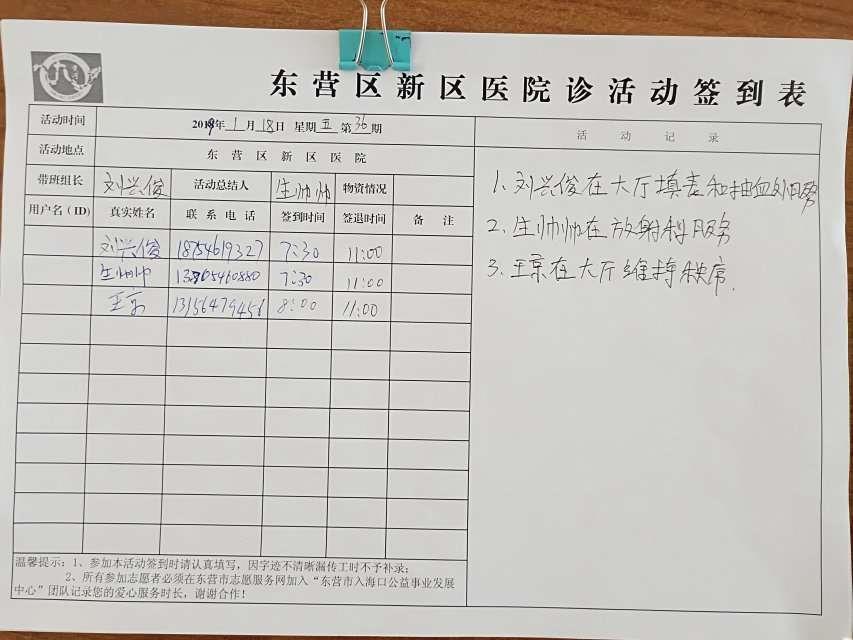 东营区新区医院诊活动签到表
活动时间 2019年1月18日 星期五 第36期
活动地点 东营区新区医院
带班组长 刘兴俊 活动总结人 生帅帅 物资情况
用户名(ID) 真实姓名 联系电话 签到时间 签退时间 备注
刘兴俊 18754619327 7:30 11:00
生帅帅 7:30 11:00
王京 13156479456 8:00 11:00
温馨提示:1、参加本活动签到时请认真填写,因字迹不清晰漏传工时不予补录;
2、所有参加志愿者必须在东营市志愿服务网加入“东营市入海口公益事业发展
中心”团队记录您的爱心服务时长,谢谢合作!
活动记录
1.刘兴俊在大厅填表和抽血处服务
2.生帅帅在放射科服务
3.王京在大厅维持秩席.